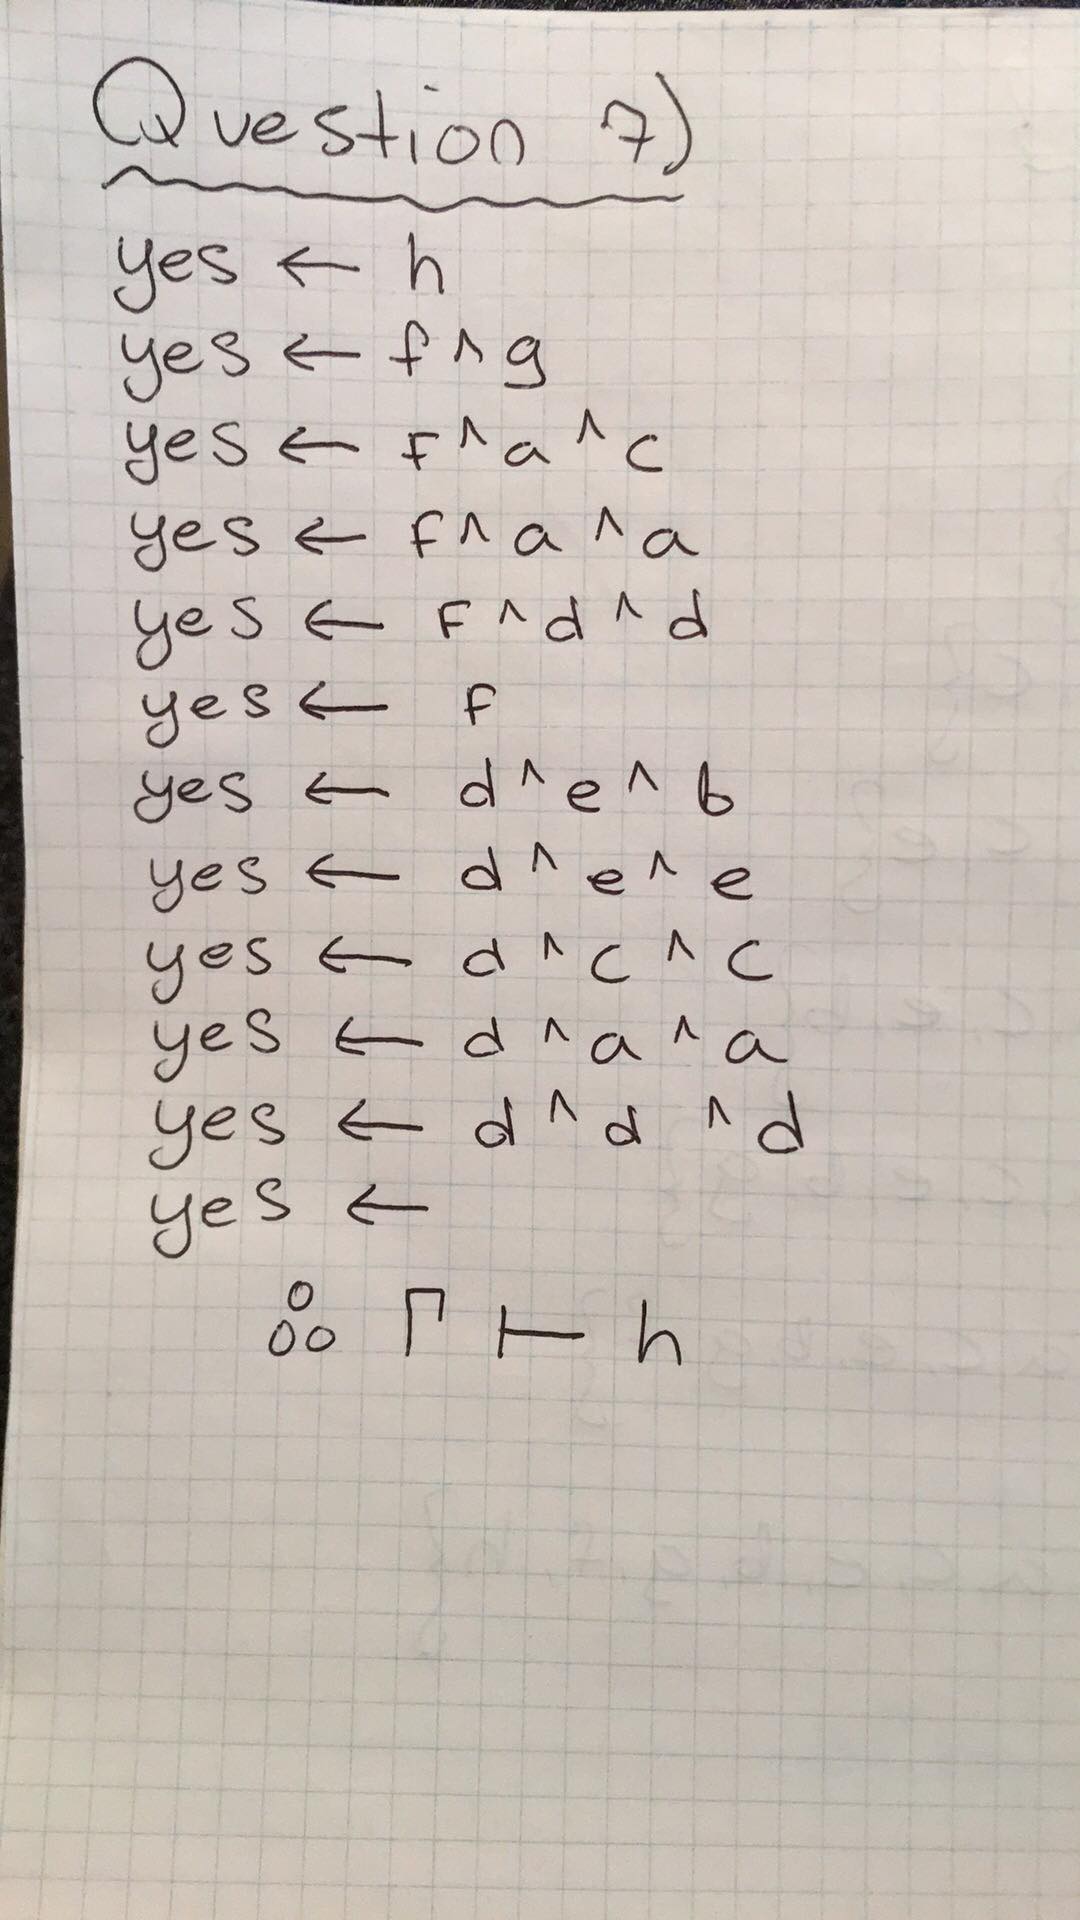 Question 7)
yes ← h
yes ← f ∧ g
yes ← f ∧ a ∧ c
yes ← f ∧ a ∧ a
yes ← f ∧ d ∧ d
yes ← f
yes ← d ∧ e ∧ b
yes ← d ∧ e ∧ e
yes ← d ∧ c ∧ c
yes ← d ∧ a ∧ a
yes ← d ∧ d ∧ d
yes ←
∴ Γ ⊢ h